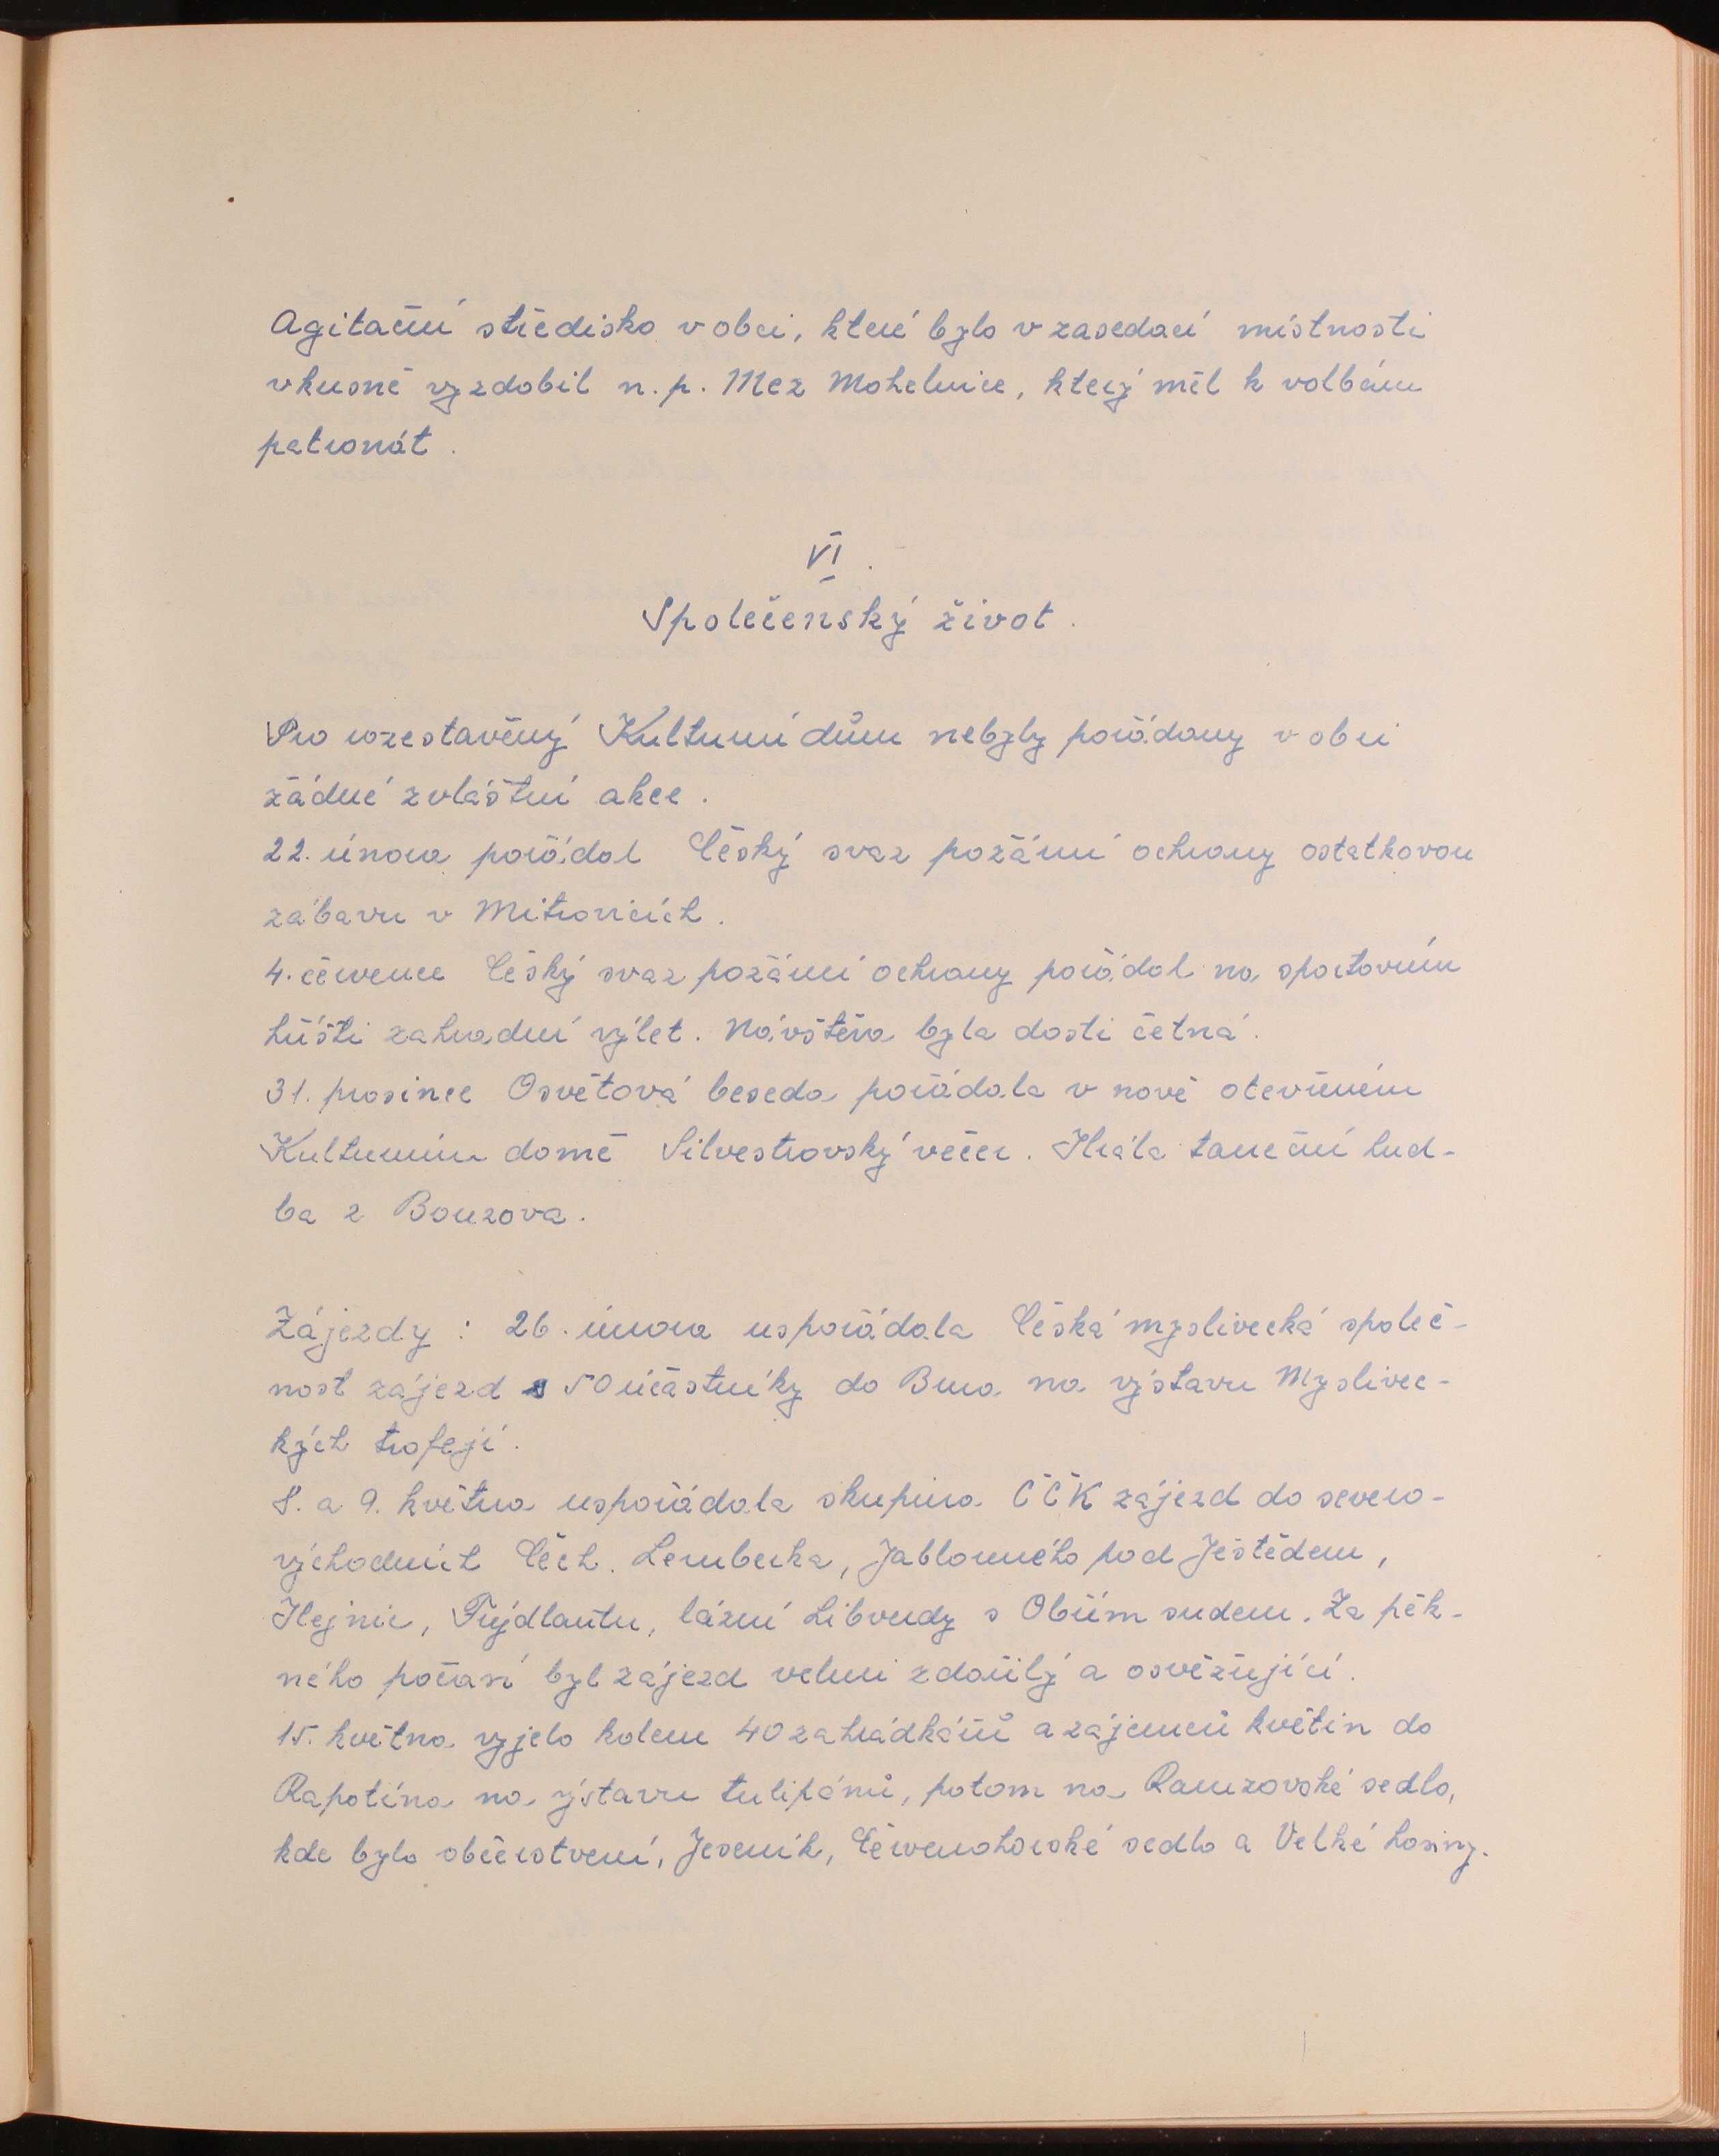 Agitační středisko v obci, které bylo v zasedací místnosti
vkusně vyzdobil n. p. Mez Mohelnice, který měl k volbám
patronát.
VI.
Společenský život.
Pro rozestavěný Kulturní dům nebyly pořádány v obci
žádné zvláštní akce.
22. února pořádal Český svaz požární ochrany ostatkovou
zábavu v Mitrovicích.
4. července Český svaz požární ochrany pořádal na sportovním
hřišti zahradní výlet. Návštěva byla dosti četná.
31. prosince Osvětová beseda pořádala v nově otevřeném
Kulturním domě Silvestrovský večer. Hrála taneční hud-
ba z Bouzova.
Zájezdy : 26. února uspořádala Česká myslivecká společ-
nost zájezd s 50 účastníky do Brna na výstavu Myslivec-
kých trofejí.
8. a 9. května uspořádala skupina ČČK zájezd do severo-
východních Čech. Lemberka, Jablonného pod Ještědem,
Hejnic, Frýdlantu, lázní Libverdy s Obřím sudem. Za pěk-
ného počasí byl zájezd velmi zdařilý a osvěžující.
15. května vyjelo kolem 40 zahrádkářů a zájemců květin do
Rapotína na výstavu tulipánů, potom na Ramzovské sedlo,
kde bylo občerstvení, Jeseník, Červenohorské sedlo a Velké Losiny.